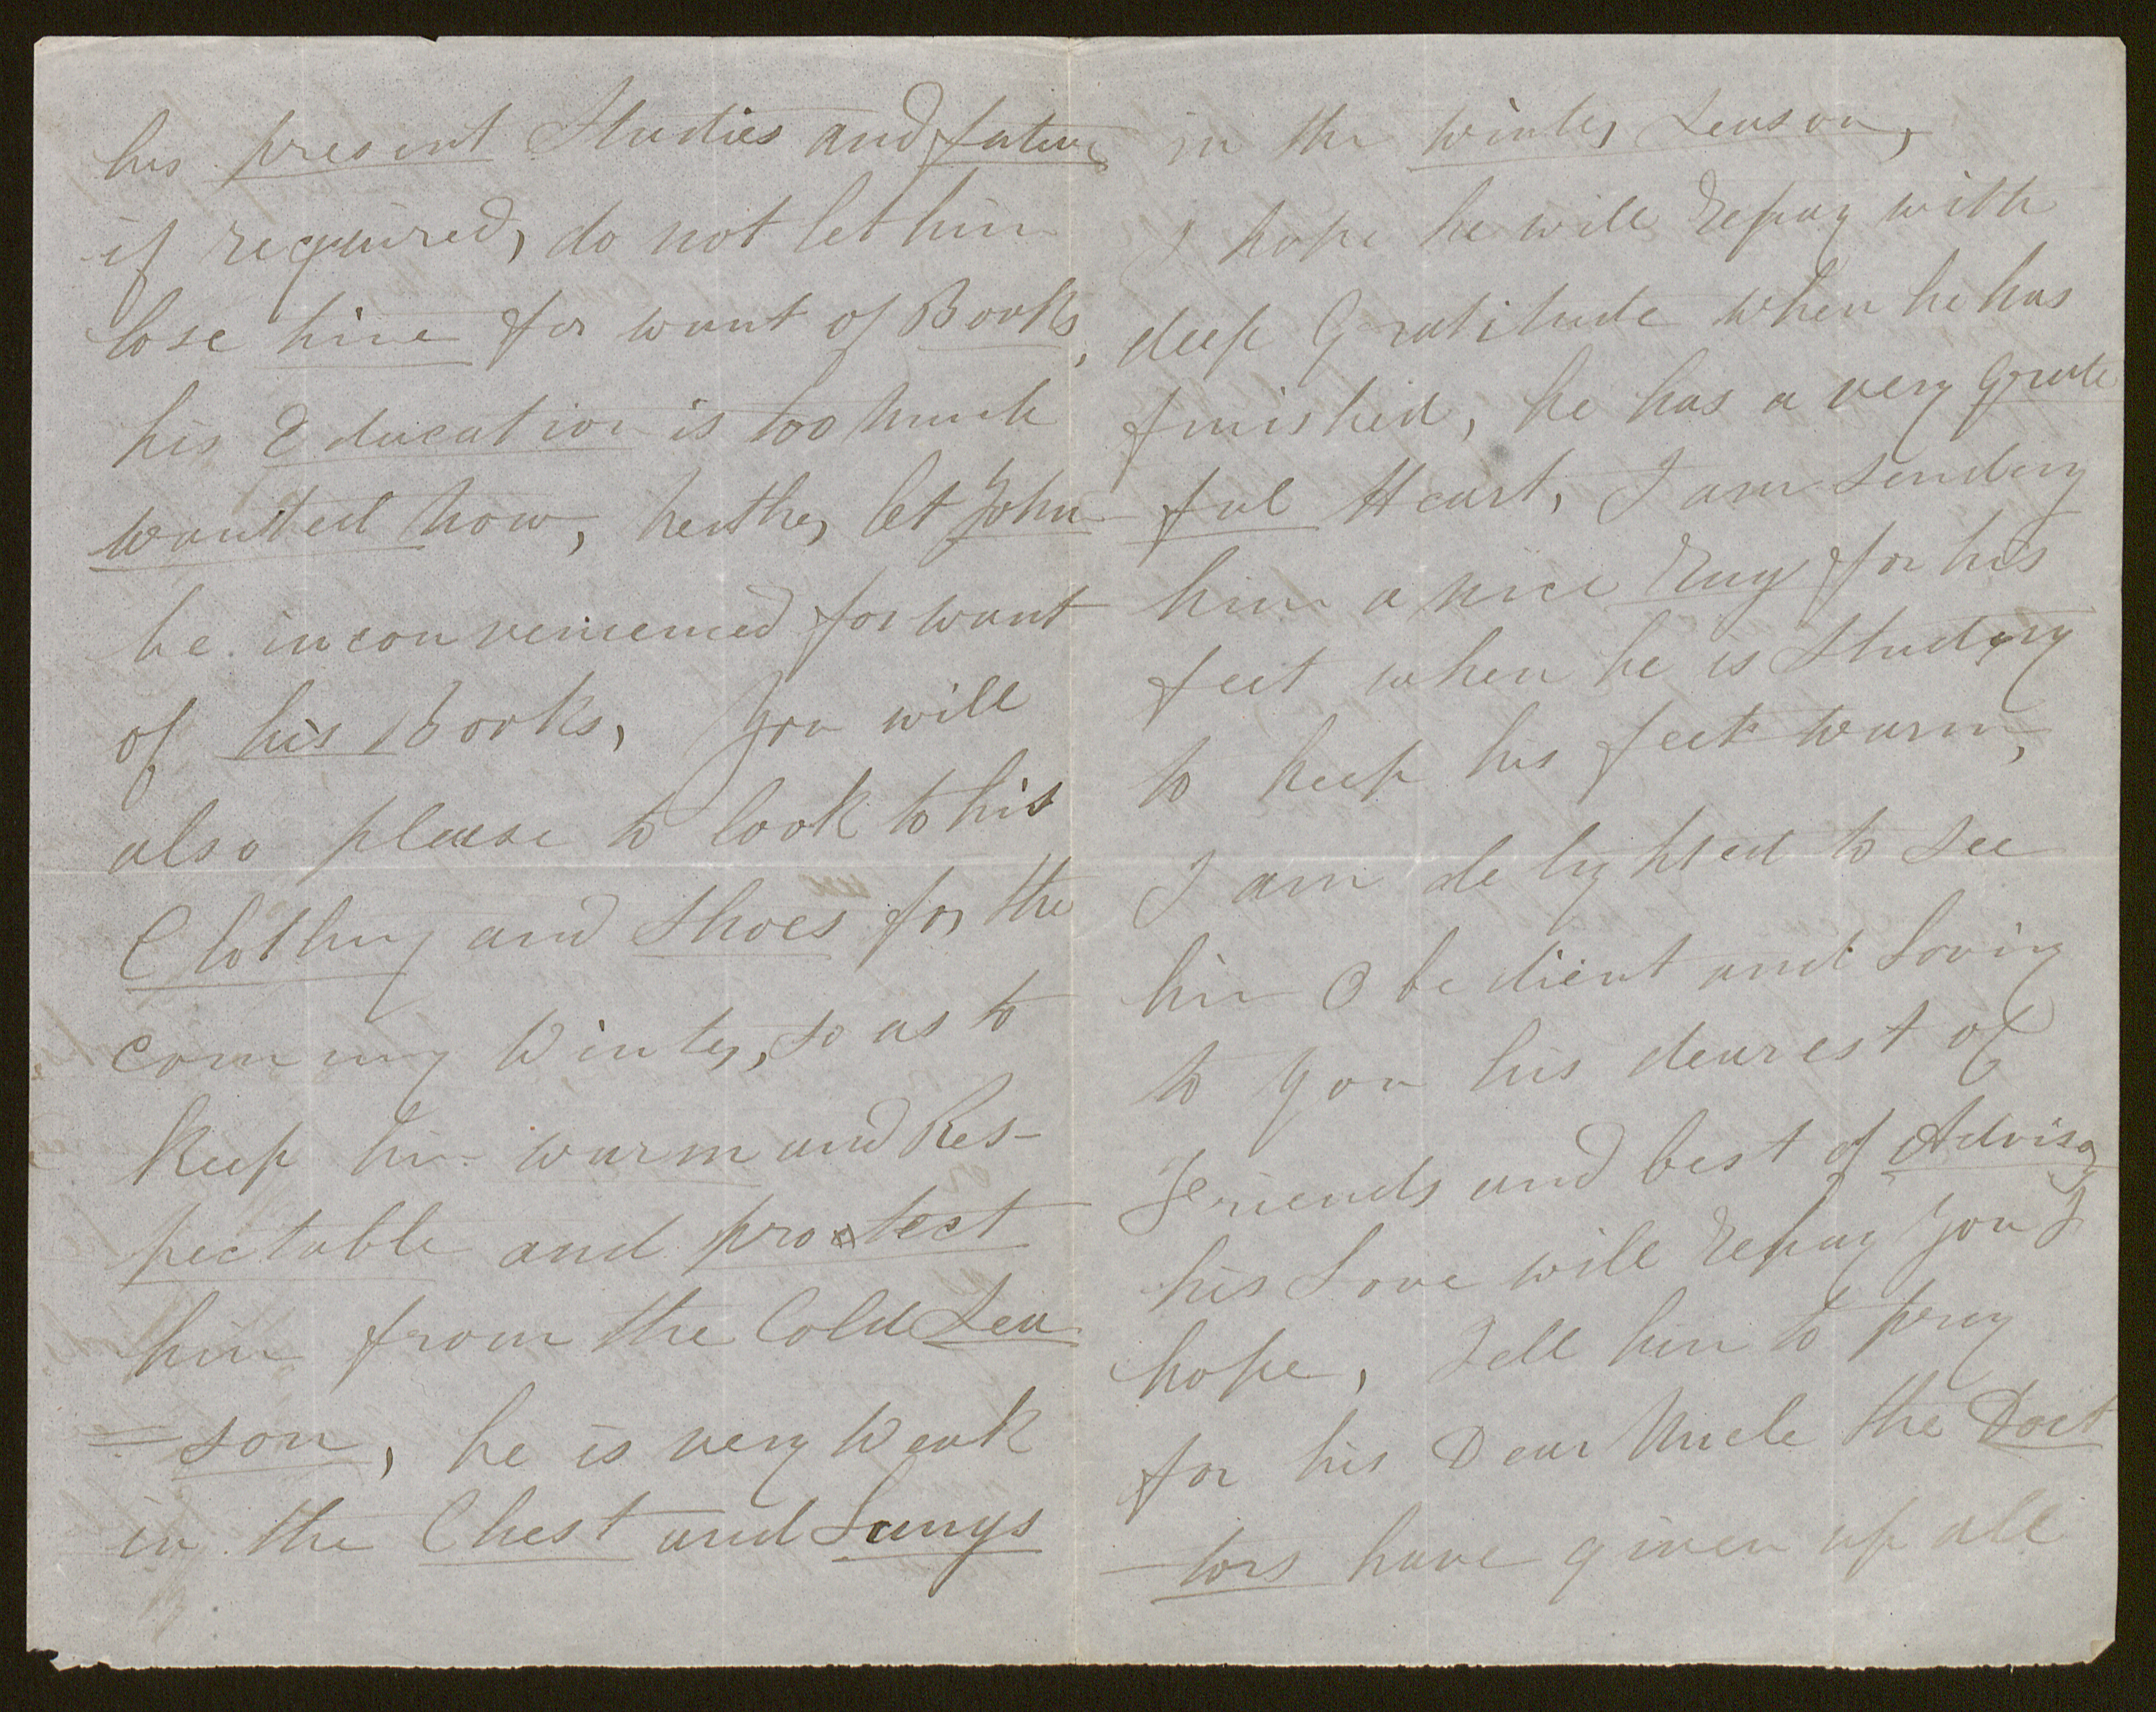 his present Studies and future
if required, do not let him
lose time for want of Books,
his Education is too much
wanted now, neither let John
be inconvenienced for want
of his Books, You will
also please to look to his
Clothing and Shoes for the
coming Winter, so as to
Keep him warm and Res-
pectable and protect
him from the Cold Sea
=son, he is very Weak
in the Chest and Lungs
in the Winter Season,
I hope he will repay with
deep Gratitude when he has
finished, he has a very Grate
ful Heart, I am sending
him a nice Rug for his
feet when he is Studying
to keep his feet warm,
I am delighted to see
him Obedient and Loving
to you his dearest of
Friends and best of Advisors
his Love will repay you I
hope, Tell him to pray
for his Dear Uncle the Doct
-tors have given up all